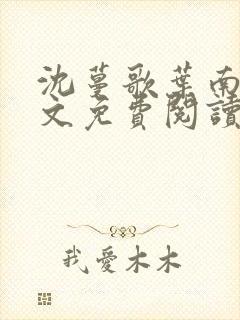 沈蔓歌葉南
文免費閱讀
我愛木木